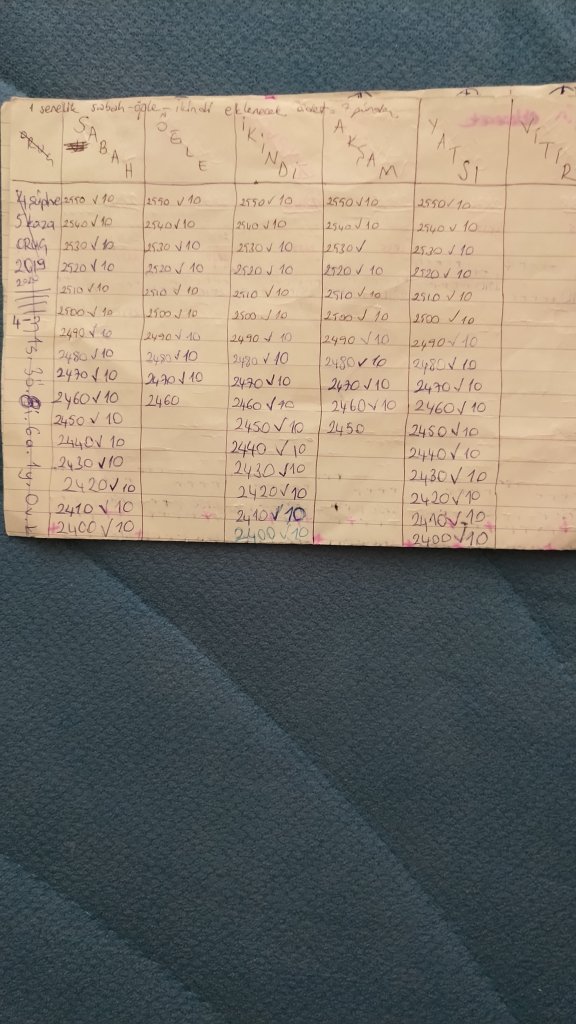 1 senelik sabah-öğle-ikindi eklenecek
ORUÇ SABAH ÖĞLE İKİNDİ AKŞAM YATSI VİTİR
şüphe 2550 √ 10 2550 √ 10 2550 √ 10 2550 √ 10 2550 √ 10
5 kaza 2540 √ 10 2540 √ 10 2540 √ 10 2540 √ 10 2540 √ 10
ORUÇ 2530 √ 10 2530 √ 10 2530 √ 10 2530 √ 2530 √ 10
2019 2520 √ 10 2520 √ 10 2520 √ 10 2520 √ 10 2520 √ 10
2510 √ 10 2510 √ 10 2510 √ 10 2510 √ 10 2510 √ 10
2500 √ 10 2500 √ 10 2500 √ 10 2500 √ 10 2500 √ 10
2490 √ 10 2490 √ 10 2490 √ 10 2490 √ 10 2490 √ 10
2480 √ 10 2480 √ 10 2480 √ 10 2480 √ 10 2480 √ 10
2470 √ 10 2470 √ 10 2470 √ 10 2470 √ 10 2470 √ 10
2460 √ 10 2460 2460 √ 10 2460 √ 10 2460 √ 10
2450 √ 10 2450 √ 10 2450 2450 √ 10
2440 √ 10 2440 √ 10 2440 √ 10
2430 √ 10 2430 √ 10 2430 √ 10
2420 √ 10 2420 √ 10 2420 √ 10
2410 √ 10 2410 √ 10 2410 √ 10
2400 √ 10 2400 √ 10 2400 √ 10